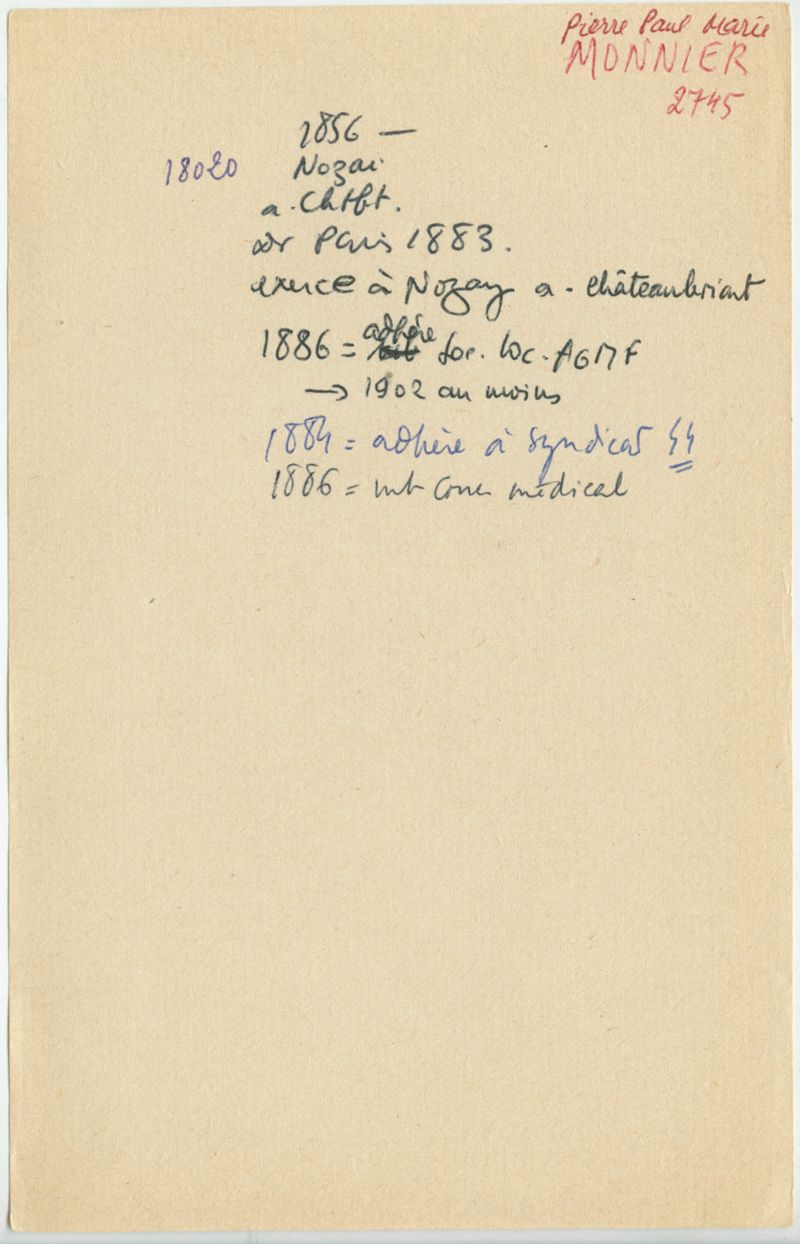 Pierre Paul Marie
MONNIER
2745
1856 —
18020 Nozai
a. Chtbt.
dr Paris 1883.
exerce à Nozay a. châteaubriant
adhère
1886 = Soc. loc. AGMF
→ 1902 au moins
1884 = adhère à Syndicat 44
1886 = mb Conc médical